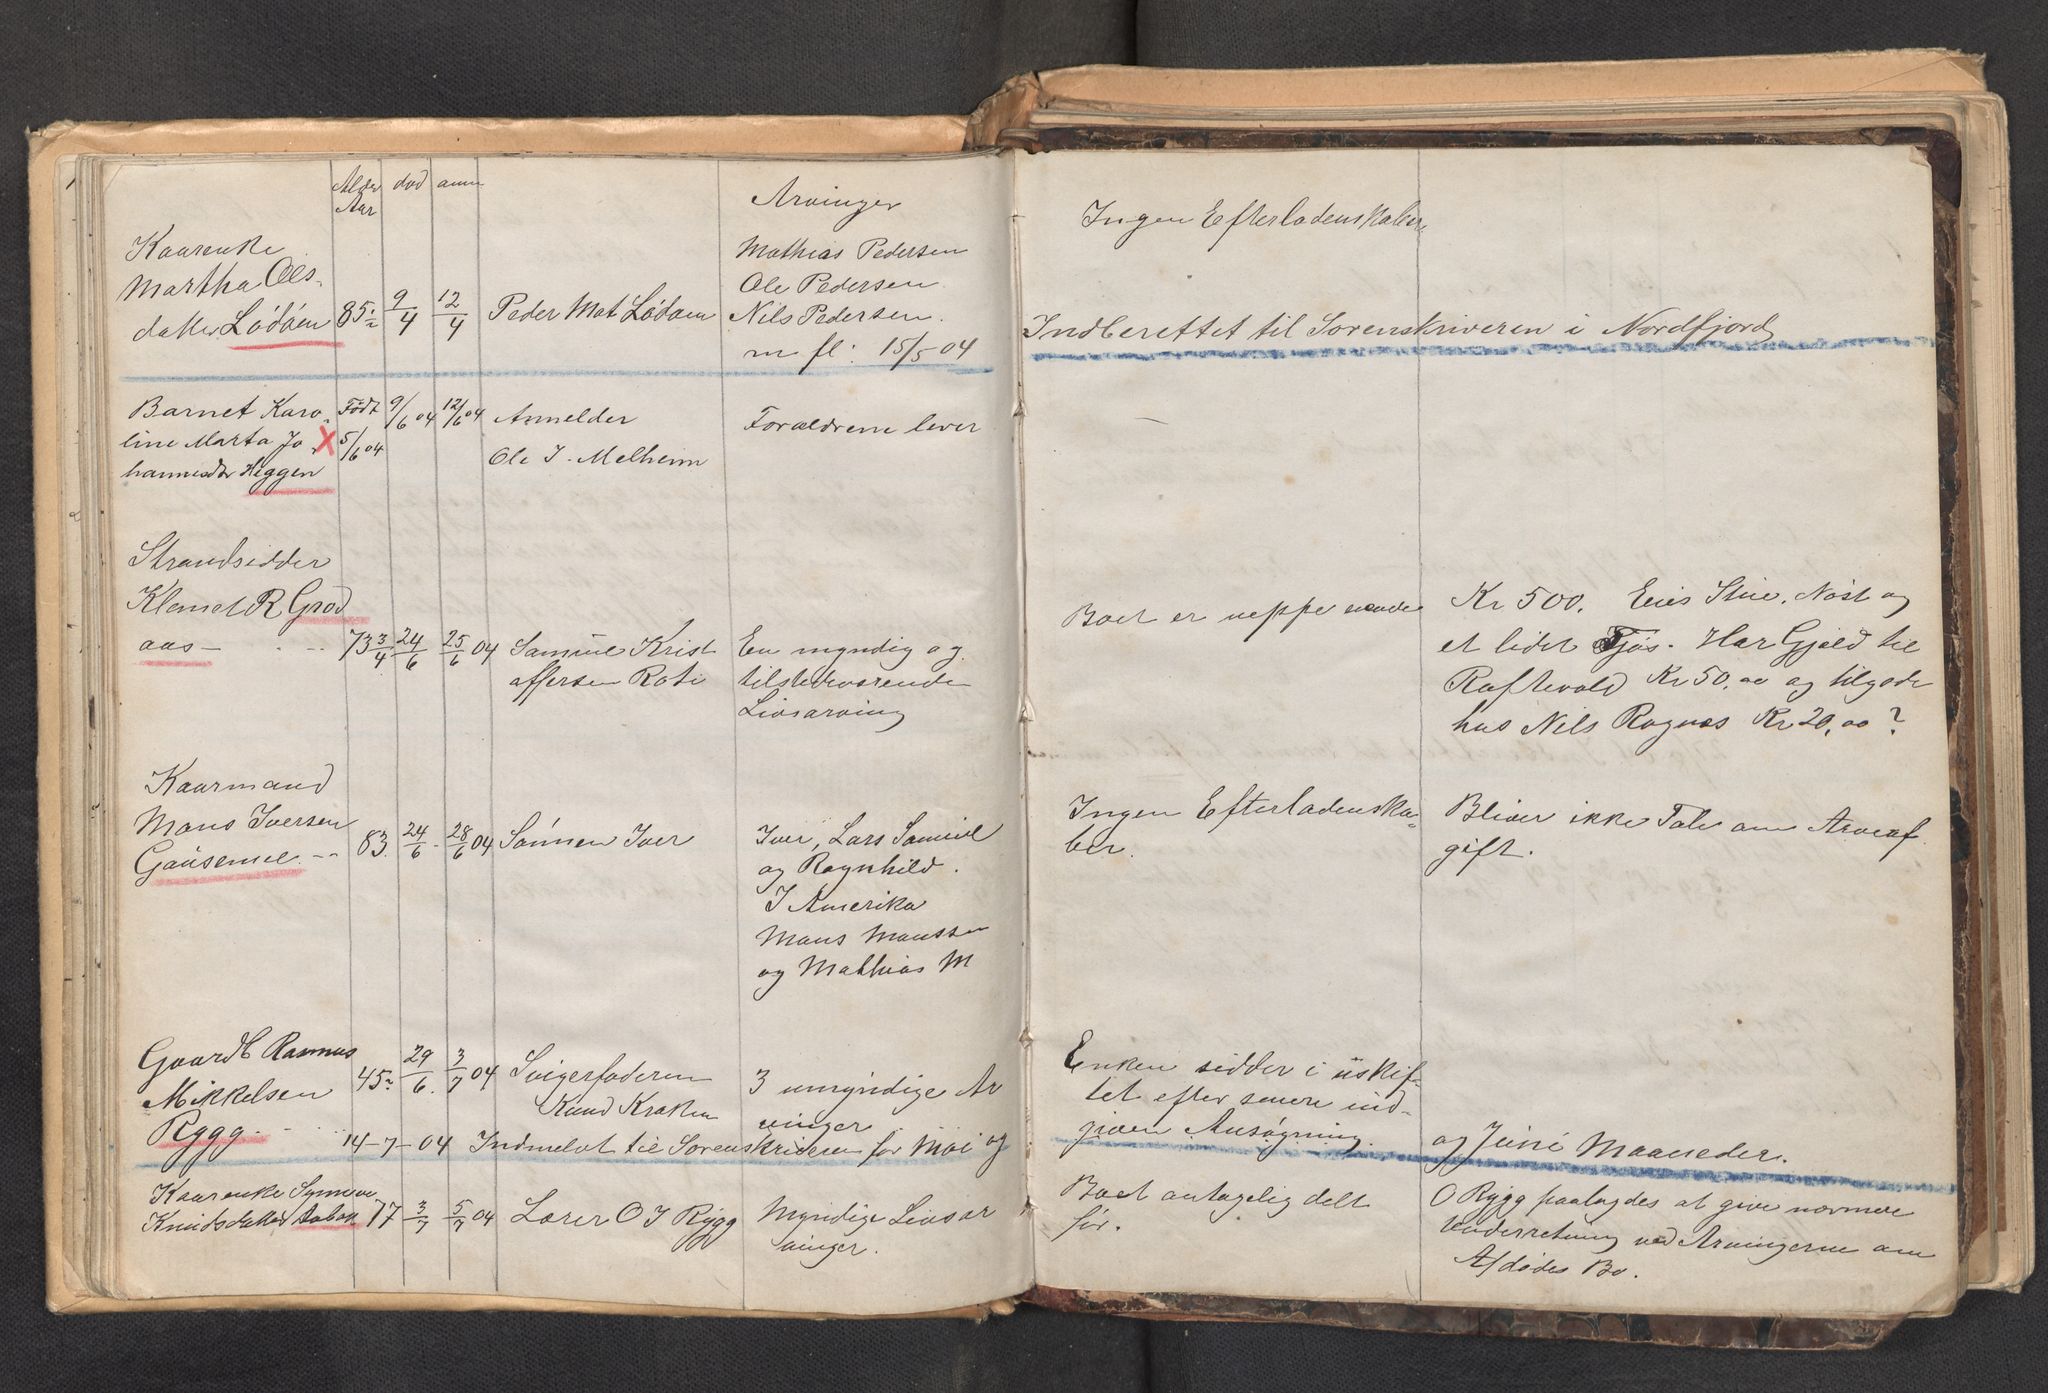 Alder død anm
Aar
Arvinger
Kaarenke
Martha Ols-
datter Lødøen 85 9/4 12/4 Peder Mat Lødøen
Mathias Pedersen
Ole Pedersen
Nils Pedersen.
m fl: 15/5 04
Ingen Efterladenskaber
Indberettet til Sorenskriveren i Nordfjord
Barnet Karo- Født 9/6 04 12/6 04 Anmelder Forældrene lever
line Marta Jo X 5/6 04
hannesdtr Heggen Ole J. Melheim
Strandsidder
Klemet R Grod
aas - 73 3/4 24/6 25/6 04 Samuel Krist
offersen Roti
En myndig og
tilstedeværende
Livsarving
Boet er neppe
Kr 500. Eies Stue, Nøst og
et lidet Fjøs. Har Gjeld til
Raftevold Kr 50,00 og tilgode
hos Nils Rognes Kr 20,00?
Kaarmand
Mons Iversen
Gausemel. 83. 24/6 - 28/6 04 Sønnen Iver
Iver, Lars Samuel
og Ragnhild.
I Amerika
Mons Monssen
og Mathias M
Ingen Efterladenska-
ber.
Bliver ikke Tale om Arveaf
gift.
Gaardb Rasmus
Mikkelsen 45 29/6. 3/7 04 Svigerfaderen
Rygg. Knud Kraken
3 umyndige Ar
vinger
Enken sidder i uskif-
tet efter senere ind-
given Ansøgning.
14-7-04 Indmeldt til Sorenskriveren for Mai og
og Juni Maaneder.
Kaarenke Synneve
Knudsdatter Aabak 77 3/7 5/7 04 Lærer O J Rygg
Myndige Livsar
vinger.
Boet antagelig delt
før.
O Rygg paalagdes at give nærmere
Underretning ved Arvingerne om
Afdødes Bo.